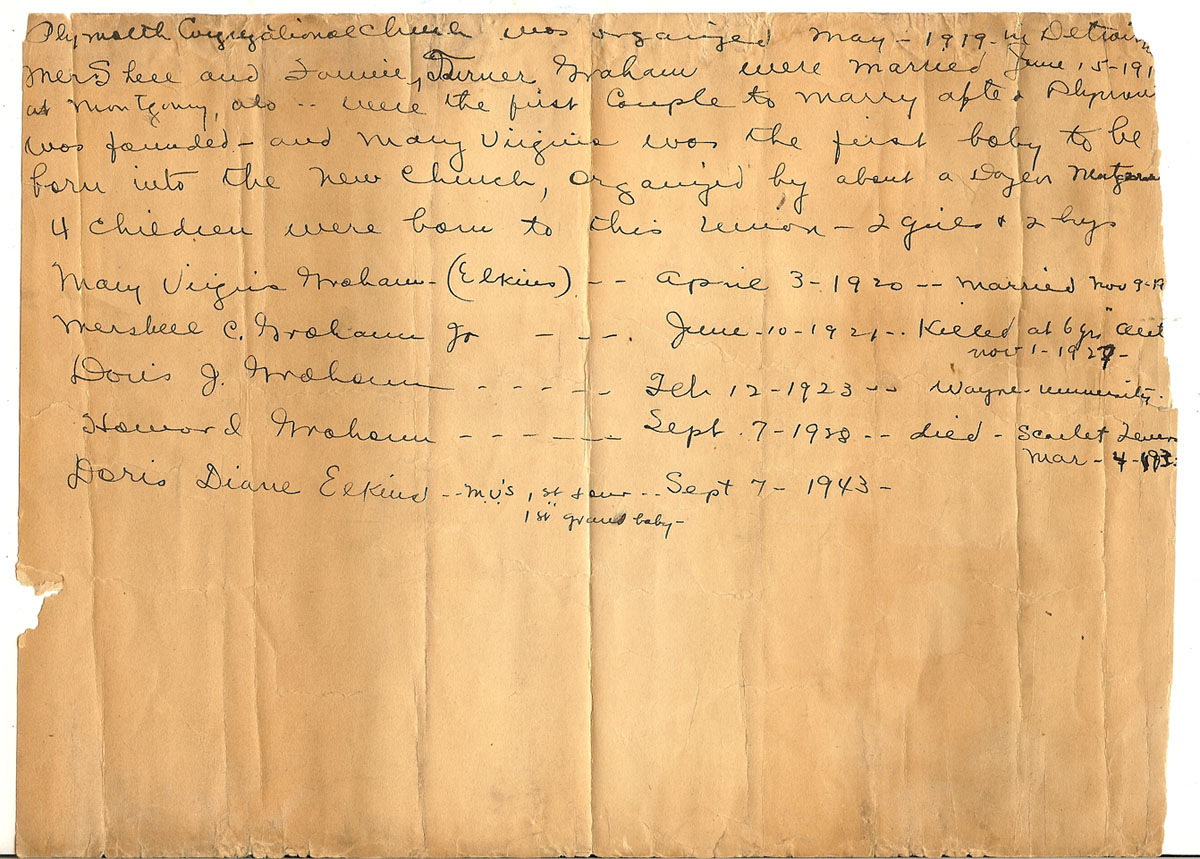 Plymouth Congregational Church was organized May - 1919 - in Detroit
Mershell and Fannie, Turner Graham were married June 15-191
at Montgomry, ala -- were the first Couple to marry after Plymou
was founded - and Mary Virginia was the first baby to be
born into the new Church, organized by about a Dozen
4 Children were born to this union - 2 girls & 2 bys
Mary Virginia Graham - (Elkins) -- April 3-1920 -- married Nov 9-19
Mershell C. Graham Jr - -- June-10-1921 -- Killed at 6 yrs
nov 1-1927 -
Doris J. Graham - - - - - - Feb 12-1923 -- Wayne University.
Howard Graham - - - - - - Sept. 7-1928 -- died - Scarlet Fever
Mar - 4-193
Doris Diane Elkins -- M.V's 1st daur -- Sept 7 - 1943 -
1st grand baby -